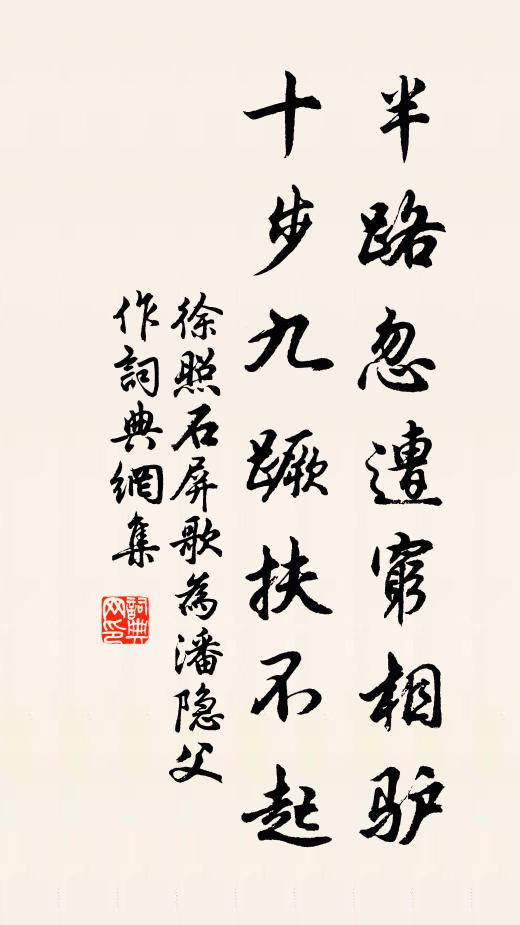 半路忽遭窮相驴
十步九蹶扶不起
徐照石屏歌為潘隐父
作詞典網集
詞典
网印